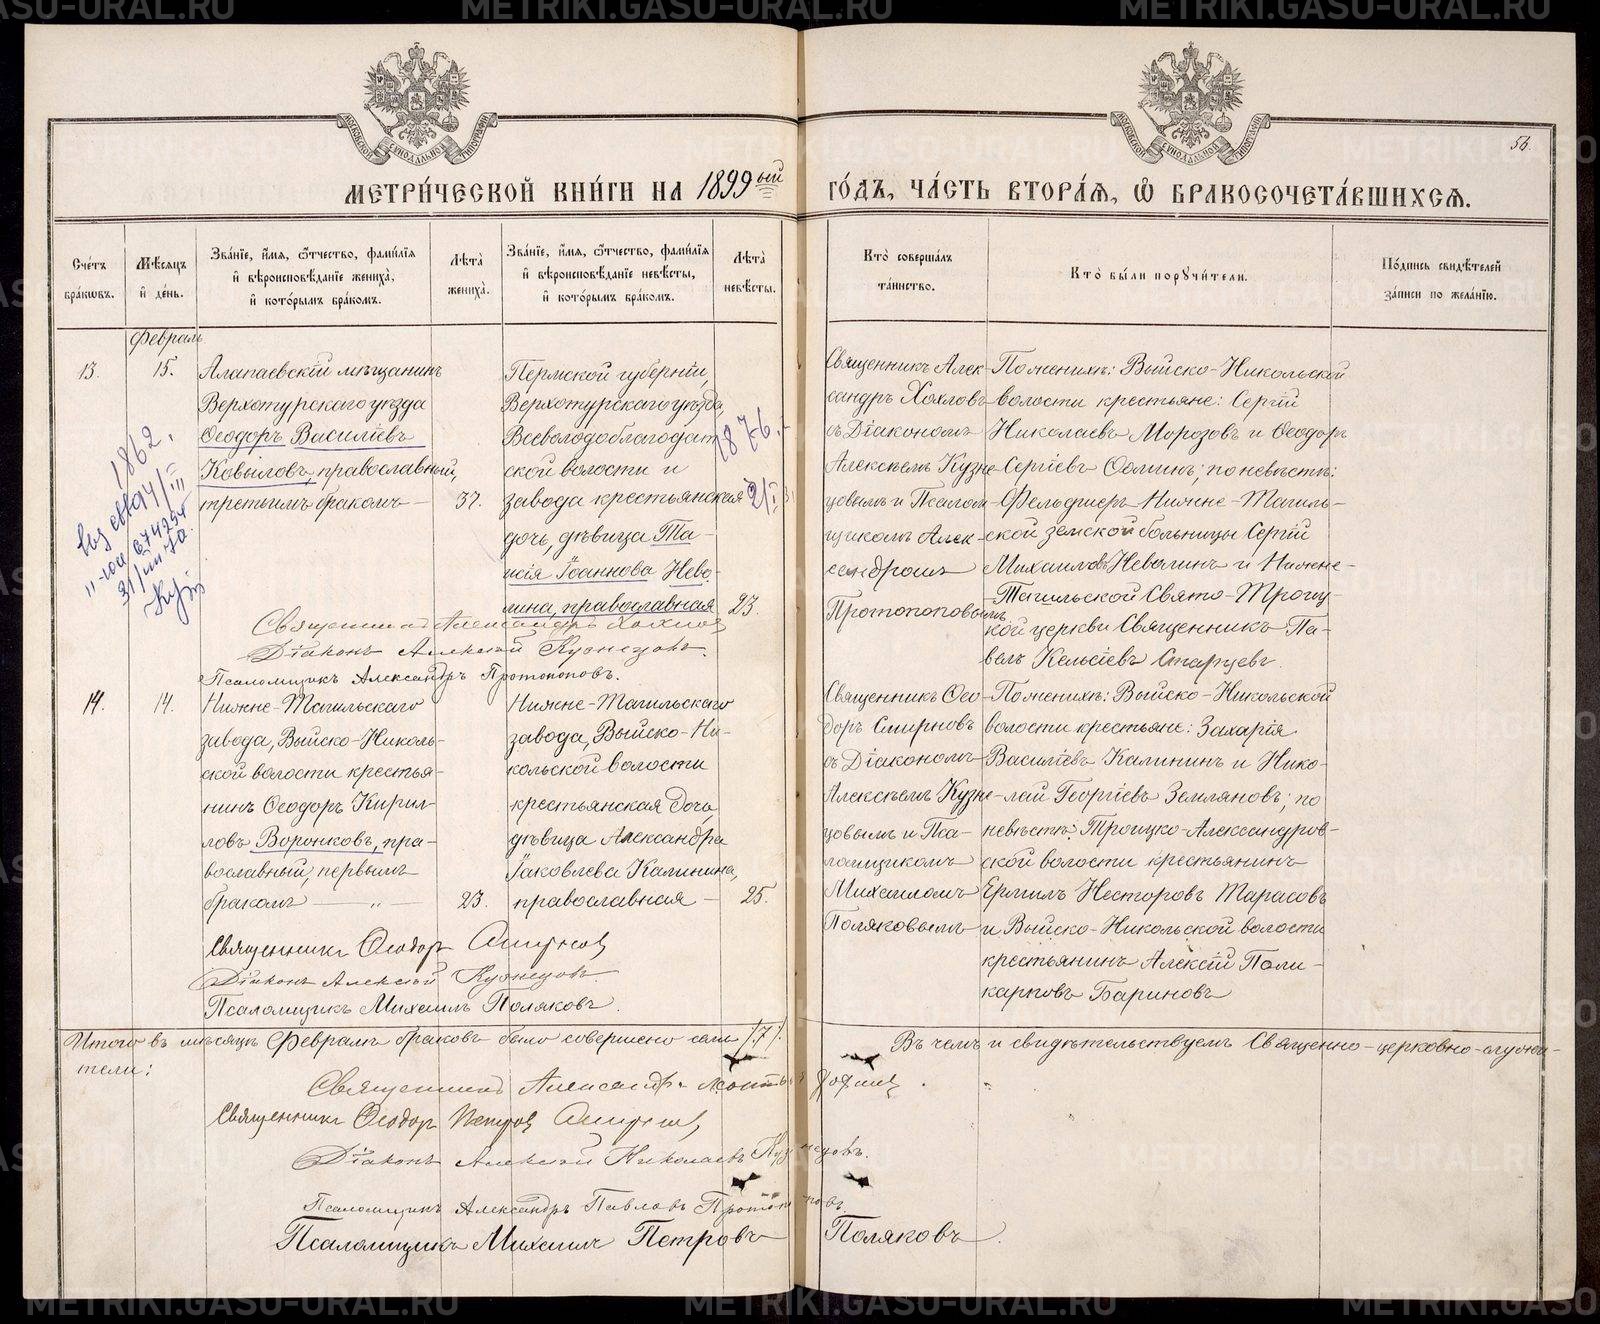 МЕТРИ́ЧЕСКОЙ КНИ́ГИ НА 1899ый ГО́ДЪ, ЧА́СТЬ ВТОРА́Я, Ѽ БРАКОСОЧЕТА́ВШИХСЯ.
56.
Сче́тъ бра́кѡвъ.
Мѣ́сяцъ и҆ де́нь.
Зва́нїе, и҆́мя, ѻ҆́тчество, фами́лїя
и҆ вѣроисповѣ́данїе жениха̀,
и҆ кото́рымъ бра́комъ.
Лѣта̀ жениха̀.
Зва́нїе, и҆́мя, ѻ҆́тчество, фами́лїя
и҆ вѣроисповѣ́данїе невѣ́сты,
и҆ кото́рымъ бра́комъ.
Лѣта̀ невѣ́сты.
Кто̀ соверша́лъ та́инство.
Кто̀ бы́ли порꙋчи́тели.
По́дпись свидѣ́телей за́писи по жела́нїю.
Февраль
13.
15.
Алапаевскій мѣщанинъ
Верхотурскаго уѣзда
Ѳеодоръ Василіевъ
Ковыловъ, православный,
третьимъ бракомъ —
37.
Пермской губерніи,
Верхотурскаго уѣзда,
Всеволодоблагодат
ской волости и
завода крестьянская
дочь, дѣвица Та-
исія Іоаннова Нево-
лина, православная
23.
1862.
1876.
Священникъ Алек-
сандръ Хохловъ
съ Діакономъ
Алексѣемъ Кузне-
цовымъ и Псалом-
щикомъ Алек-
сандромъ
Протопоповымъ
По женихѣ: Выйско-Никольской
волости крестьяне: Сергій
Николаевъ Морозовъ и Ѳеодоръ
Сергіевъ Ѳоминъ; по невѣстѣ:
Фельдшеръ Нижне-Тагиль-
ской земской больницы Сергій
Михаиловъ Неволинъ и Нижне-
Тагильской Свято-Троиц-
кой церкви Священникъ Па-
велъ Кельсіевъ Старцевъ.
Священникъ Александръ Хохлов
Діаконъ Алексій Кузнецовъ.
Псаломщикъ Александръ Протопоповъ.
14.
14.
Нижне-Тагильскаго
завода, Выйско-Николь-
ской волости крестья-
нинъ Ѳеодоръ Кирил-
ловъ Воронковъ, пра-
вославный, первымъ
бракомъ — „ —
23.
Нижне-Тагильскаго
завода, Выйско-Ни-
кольской волости
крестьянская дочь,
дѣвица Александра
Іаковлева Калинина,
православная —
25.
Священникъ Ѳео-
доръ Смирновъ
съ Діакономъ
Алексѣемъ Кузне-
цовымъ и Пса-
ломщикомъ
Михаиломъ
Поляковымъ
По женихѣ: Выйско-Никольской
волости крестьяне: Захарія
Василіевъ Калининъ и Нико-
лай Георгіевъ Земляновъ; по
невѣстѣ: Троицко-Александров-
ской волости крестьянинъ
Ермилъ Несторовъ Тарасовъ
и Выйско-Никольской волости
крестьянинъ Алексій Поли-
карповъ Бариновъ
Священникъ Ѳеодоръ Смирнов
Діаконъ Алексій Кузнецовъ.
Псаломщикъ Михаилъ Поляковъ.
Итого въ мѣсяцѣ Февралѣ браковъ было совершено семь /7/. Въ чемъ и свидѣтельствуемъ Священно-церковно-служи-
тели:
Священникъ Александръ
Священникъ Ѳеодоръ Петров Смирнов,
Діаконъ Алексій Николаевъ Кузнецовъ.
Псаломщикъ Александръ Павловъ Протопоповъ.
Псаломщикъ Михаилъ Петровъ Поляковъ.